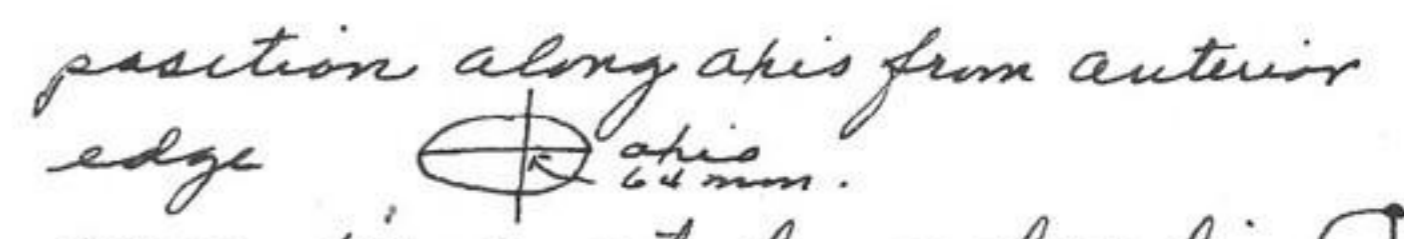 position along axis from anterior
edge
axis
64 mm.